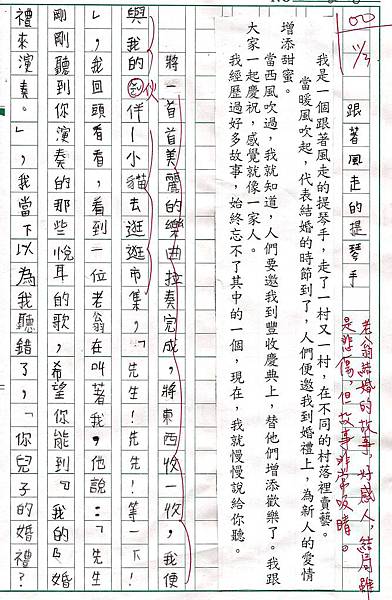 NO.
100
11/3
跟著風走的提琴手
老翁結婚的故事,好感人,結局雖
是悲傷,但故事非常吸睛。
我是一個跟著風走的提琴手,走了一村又一村,在不同的村落裡賣藝。
當暖風吹起,代表結婚的時節到了,人們便邀我到婚禮上,為新人的愛情
增添甜蜜。
當西風吹過,我就知道,人們要邀我到豐收慶典上,替他們增添歡樂了。我跟
大家一起慶祝,感覺就像一家人。
我經歷過好多故事,始終忘不了其中的一個,現在,我就慢慢說給你聽。
將一首首美麗的樂曲拉奏完成,將東西收一收,我便
與我的伙伴—小貓去逛逛市集,「先生!先生!等一下!
」,我回頭看看,看到一位老翁,在叫著我,他說:「先生!
剛剛聽到你演奏的那些悅耳的歌,希望你能到『我的』婚
禮來演奏。」,我當下以為我聽錯了,「你兒子的婚禮?